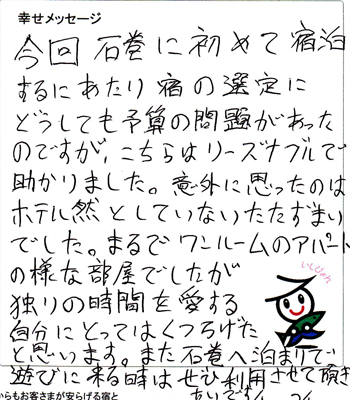 幸せメッセージ
今回 石巻に初めて宿泊
するにあたり宿の選定に
どうしても予算の問題があった
のですが、こちらはリーズナブルで
助かりました。意外に思ったのは
ホテル然としていないたたずまい
でした。まるでワンルームのアパート
の様な部屋でしたが
独りの時間を愛する
自分にとってはくつろげた
と思います。また石巻へ泊まりで
遊びに来る時はぜひ利用させて頂き
たいです。
からもお客さまが安らげる宿と